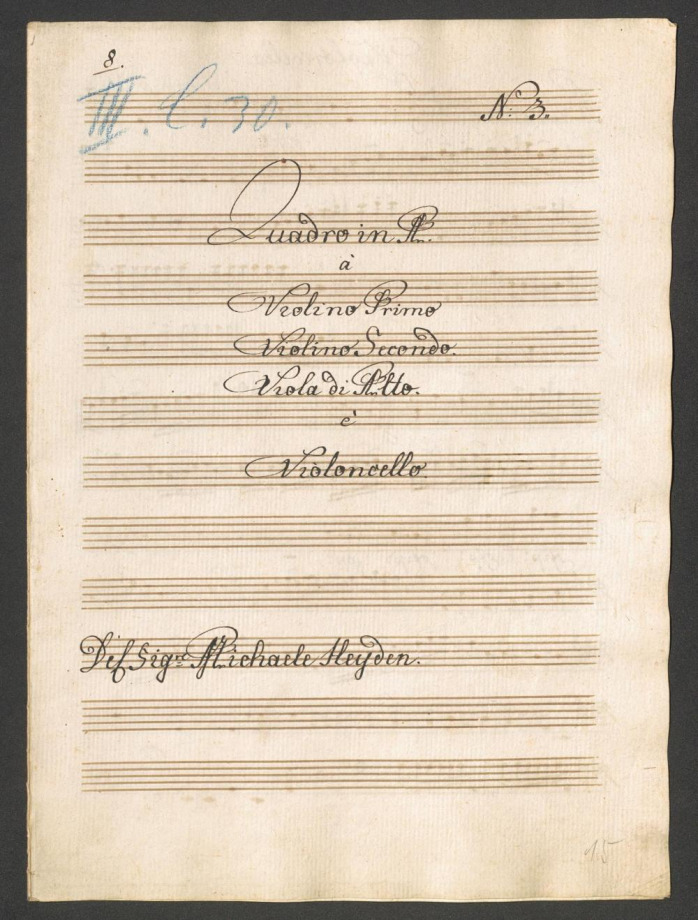 8.
III. C. 30.
N.º 3.
Quadro in A.
à
Violino Primo
Violino Secondo.
Viola di Alto.
è
Violoncello.
Del Sig.re Michaele Heyden.
15